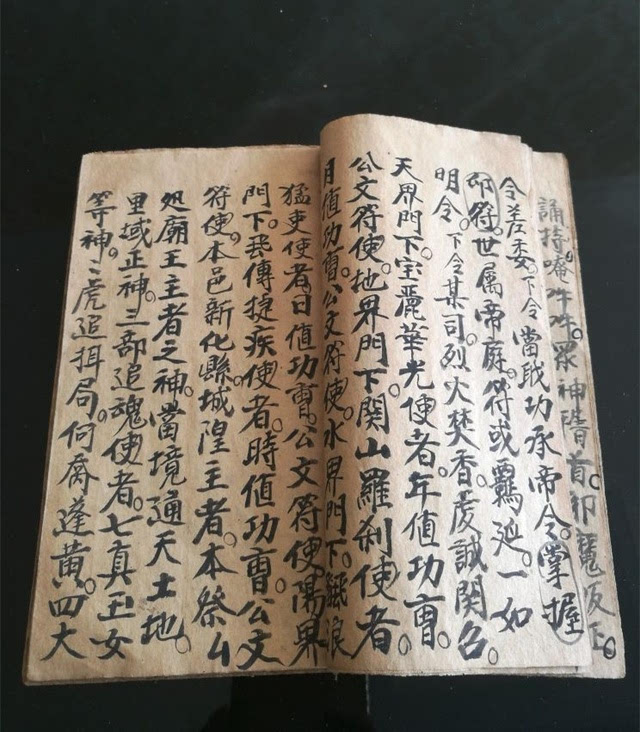 誦持唵吽吽。眾神稽首。卬魔皈正。
令差委。下令當戝功承帝令。掌握
卬符。世属帝庭。符或羈延。一如
明令。下令某司。烈火焚香。虔誠関召
天界門下。宝麗華光使者。年值功曺。
公文符使。地界門下。関山羅刹使者
月值功曺。公文符使。水界門下。
猛吏使者。日值功曺。公文符使。陽界
門下。飛傳捷疾使者。時值功曺。公文
符使。本邑新化縣城隍主者。本祭厶
処廟王主者之神。當境通天土地。
里域正神。三部追魂使者。七真玉女
等神。二虎追捉局。何喬蓬黄。四大